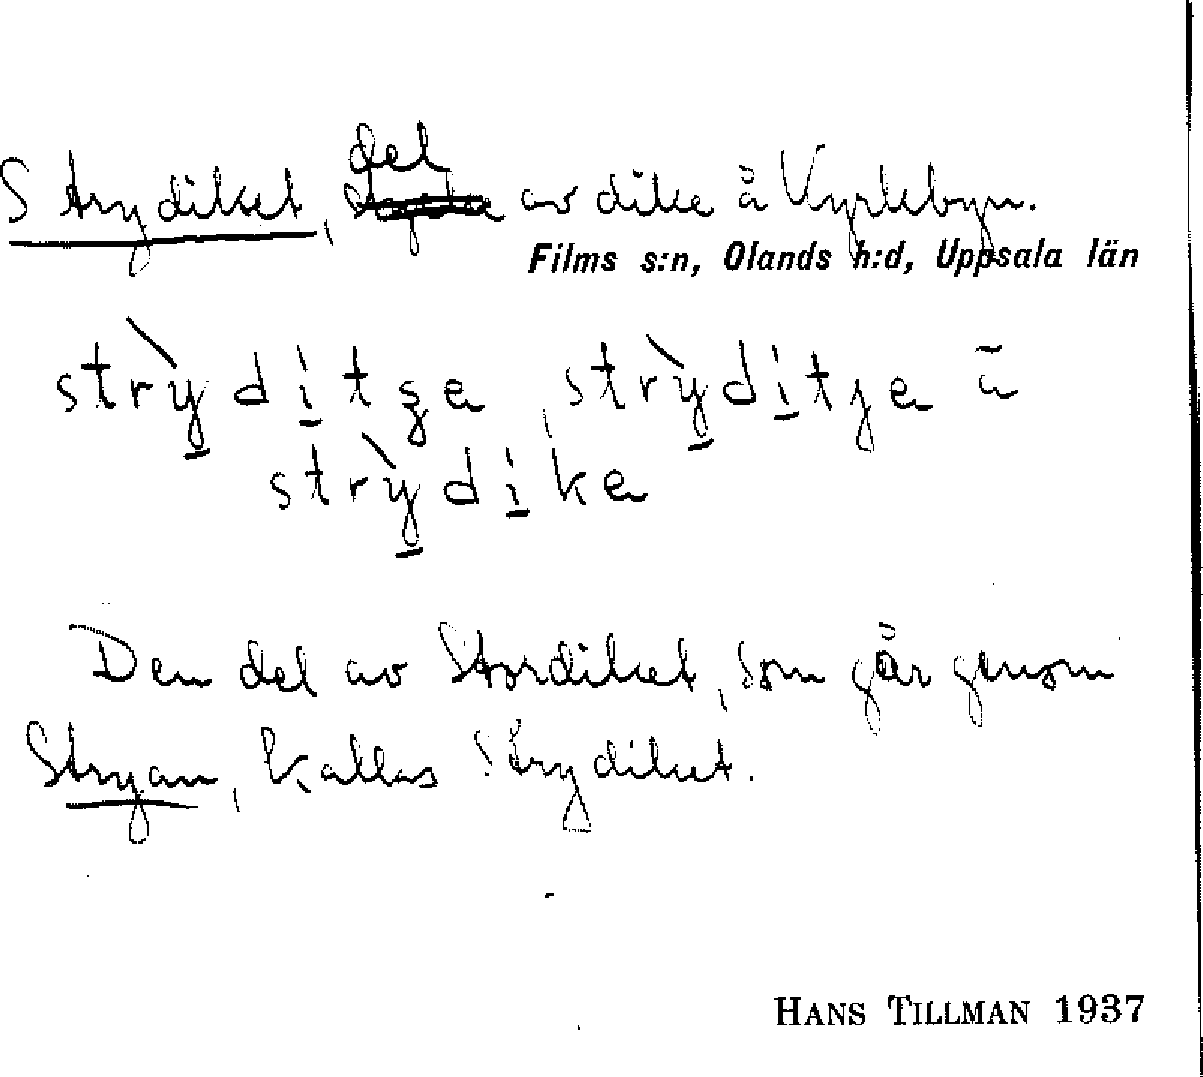 Strydiket, del av dike å Kyrkbyn.
Films s:n, Olands h:d, Uppsala län
strỳditʒe, strỳditɟe ā
strỳdike
Den del av Stordiket, som går genom
Stryan, kallas Strydiket.
HANS TILLMAN 1937